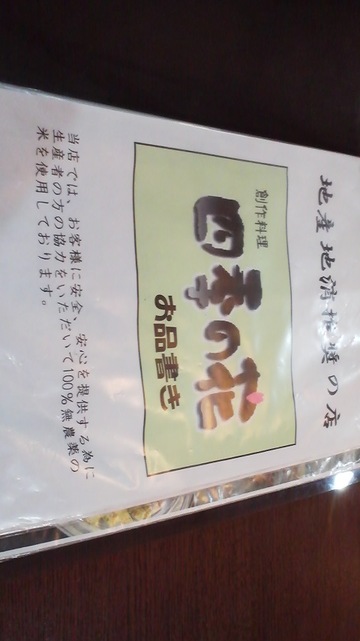 地産地消推奨の店
創作料理
四季の花
お品書き
当店では、お客様に安全、安心を提供する為に
生産者の方の協力をいただいて100%無農薬の
米を使用しております。